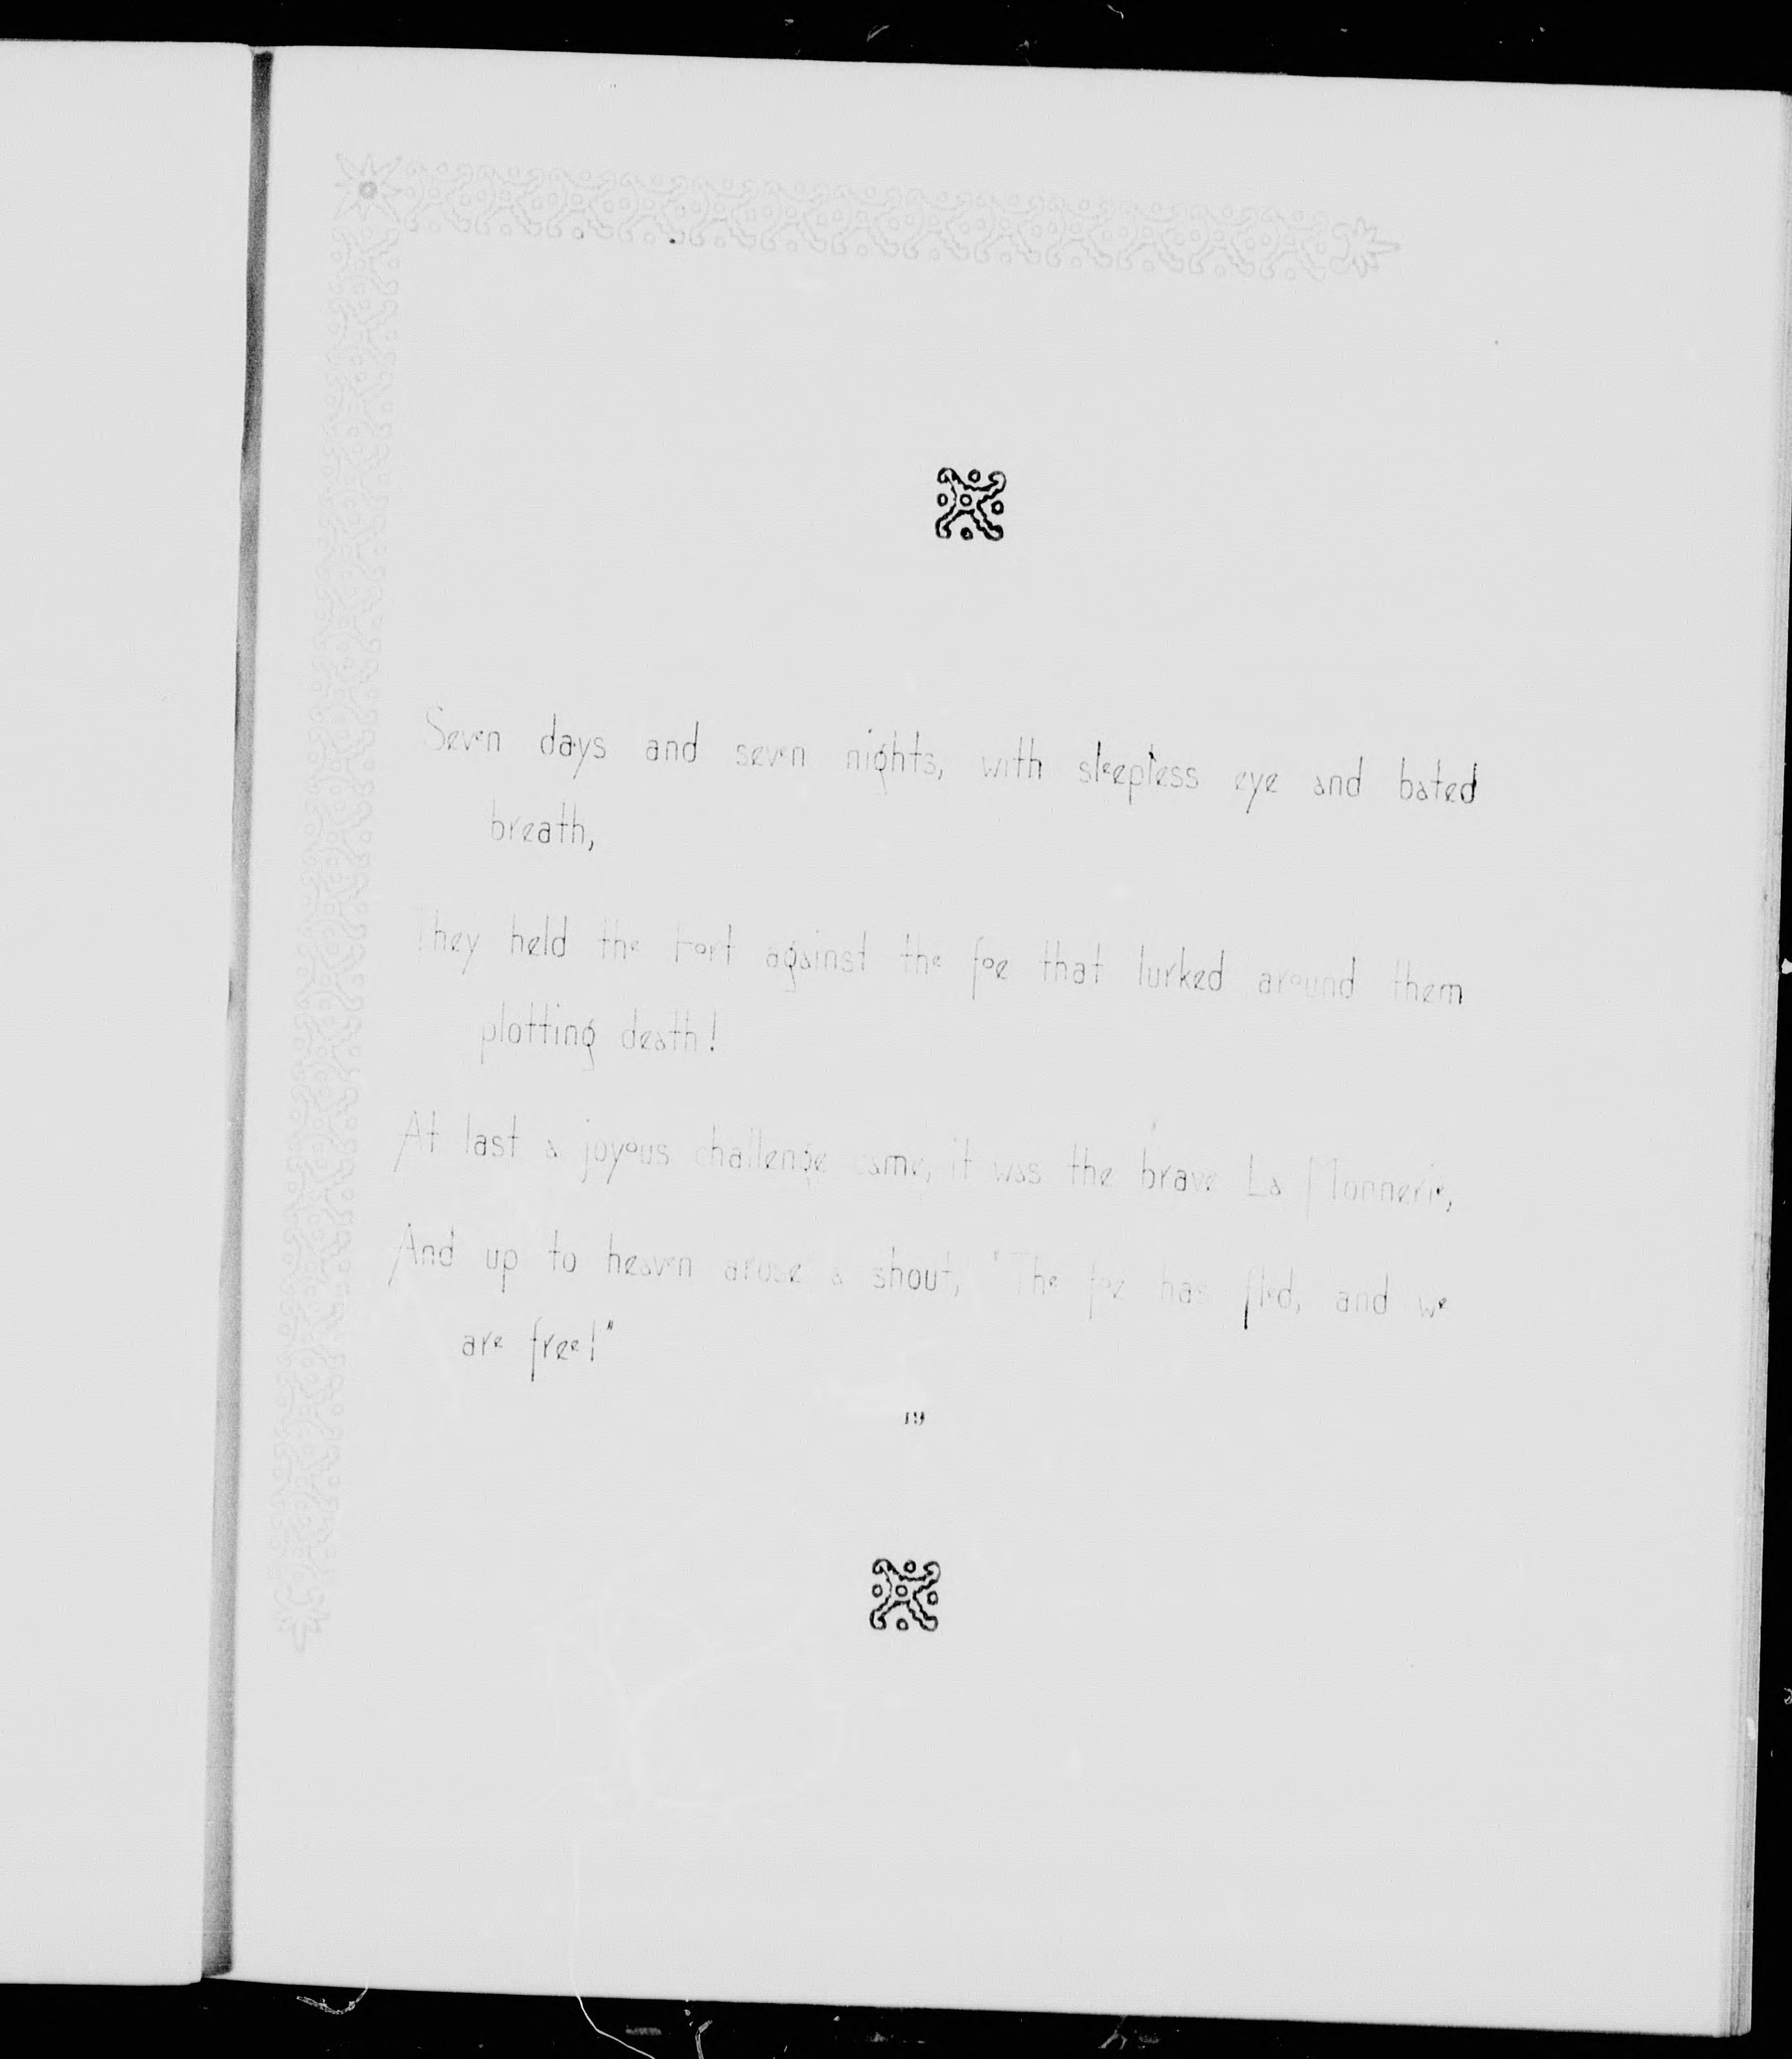 Seven days and seven nights, with sleepless eye and bated
breath,
They held the Fort against the foe that lurked around them
plotting death!
At last a joyous challenge came, it was the brave La Monnerie,
And up to heaven arose a shout, "The foe has fled, and we
are free!"
19